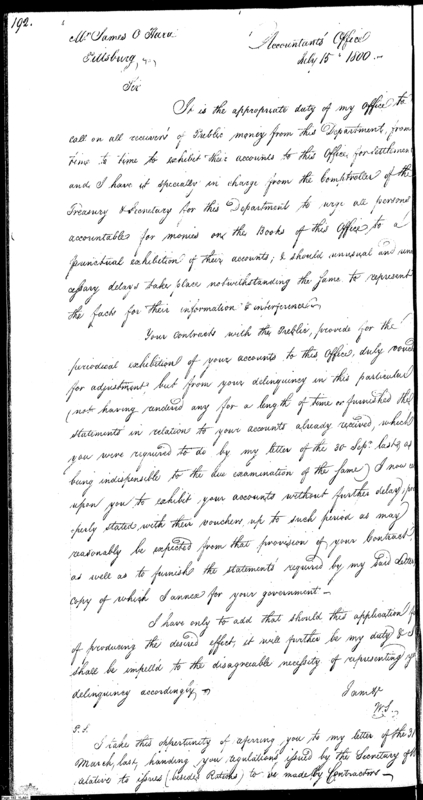 192.
Mr James O Hara
Pittsburg,
Accountants Office
July 15th 1800.
Sir
It is the appropriate duty of my Office to
call on all receivers of Public money from this Department, from
time to time to exhibit their accounts to this Office for settlement
and I have it specially in charge from the Comptroller of the
Treasury & Secretary for this Department to urge all persons
accountable for monies on the Books of this Office to a
punctual exhibition of their accounts; & should unusual and
cessary delays take place notwithstanding the same to represent
the facts for their information & interference
Your contracts with the Public, provide for the
periodical exhibition of your accounts to this Office duly
for adjustment, but from your delinquency in this particular
(not having rendered any for a length of time or furnished the
statements in relation to your accounts already received, which
you were required to do by my letter of the 30 Sept. last, as
being indispensible to the due examination of the same) I now
upon you to exhibit your accounts without further delay,
perly stated, with their vouchers up to such period as may
reasonably be expected from that provision of your Contract
as well as to furnish the statements required by my said Letter
copy of which I annex for your government—
I have only to add that should this application
of producing the desired effect, it will further be my duty &
shall be impell'd to the disagreeable necessity of representing
delinquency accordingly,
I am &
W.S.
P.S.
I take this oppertunity of refering you to my letter of the 31
March, last, handing you regulations issued by the Secretary of
relative to issues (besides Rations) to be made by Contractors—